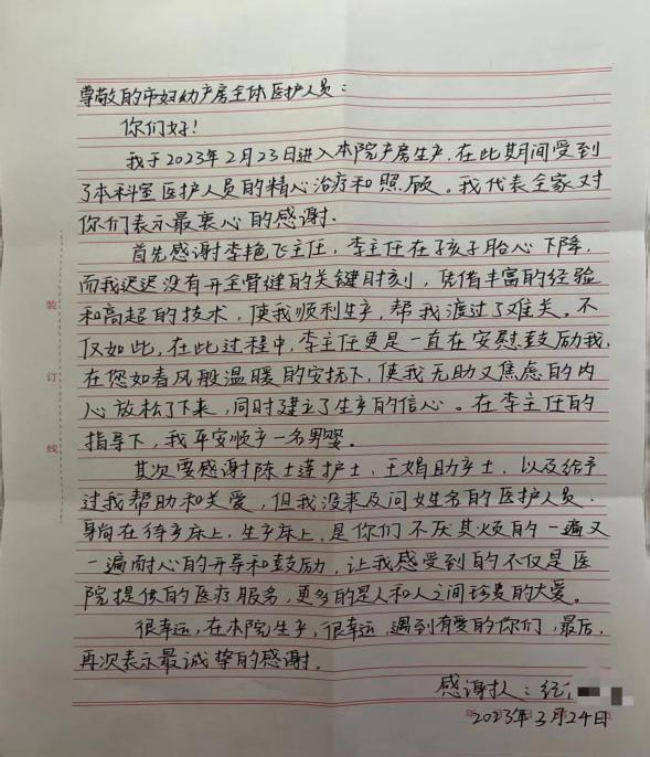 尊敬的市妇幼产房全体医护人员：
你们好！
我于2023年2月23日进入本院产房生产，在此期间受到
了本科室医护人员的精心治疗和照顾。我代表全家对
你们表示最衷心的感谢.
首先感谢李艳飞主任，李主任在孩子胎心下降，
而我迟迟没有开全骨缝的关键时刻，凭借丰富的经验
和高超的技术，使我顺利生产，帮我渡过了难关。不
仅如此，在此过程中，李主任更是一直在安慰鼓励我，
在您如春风般温暖的安抚下，使我无助又焦虑的内
心放松了下来，同时建立了生产的信心。在李主任的
指导下，我平安顺产一名男婴。
其次要感谢陈士莲护士、王娟助产士，以及给予
过我帮助和关爱，但我没来及问姓名的医护人员.
躺在待产床上，生产床上，是你们不厌其烦的一遍又
一遍耐心的开导和鼓励，让我感受到的不仅是医
院提供的医疗服务，更多的是人和人之间珍贵的大爱。
很幸运，在本院生产，很幸运，遇到有爱的你们，最后，
再次表示最诚挚的感谢.
感谢人：
2023年3月24日
装
订
线